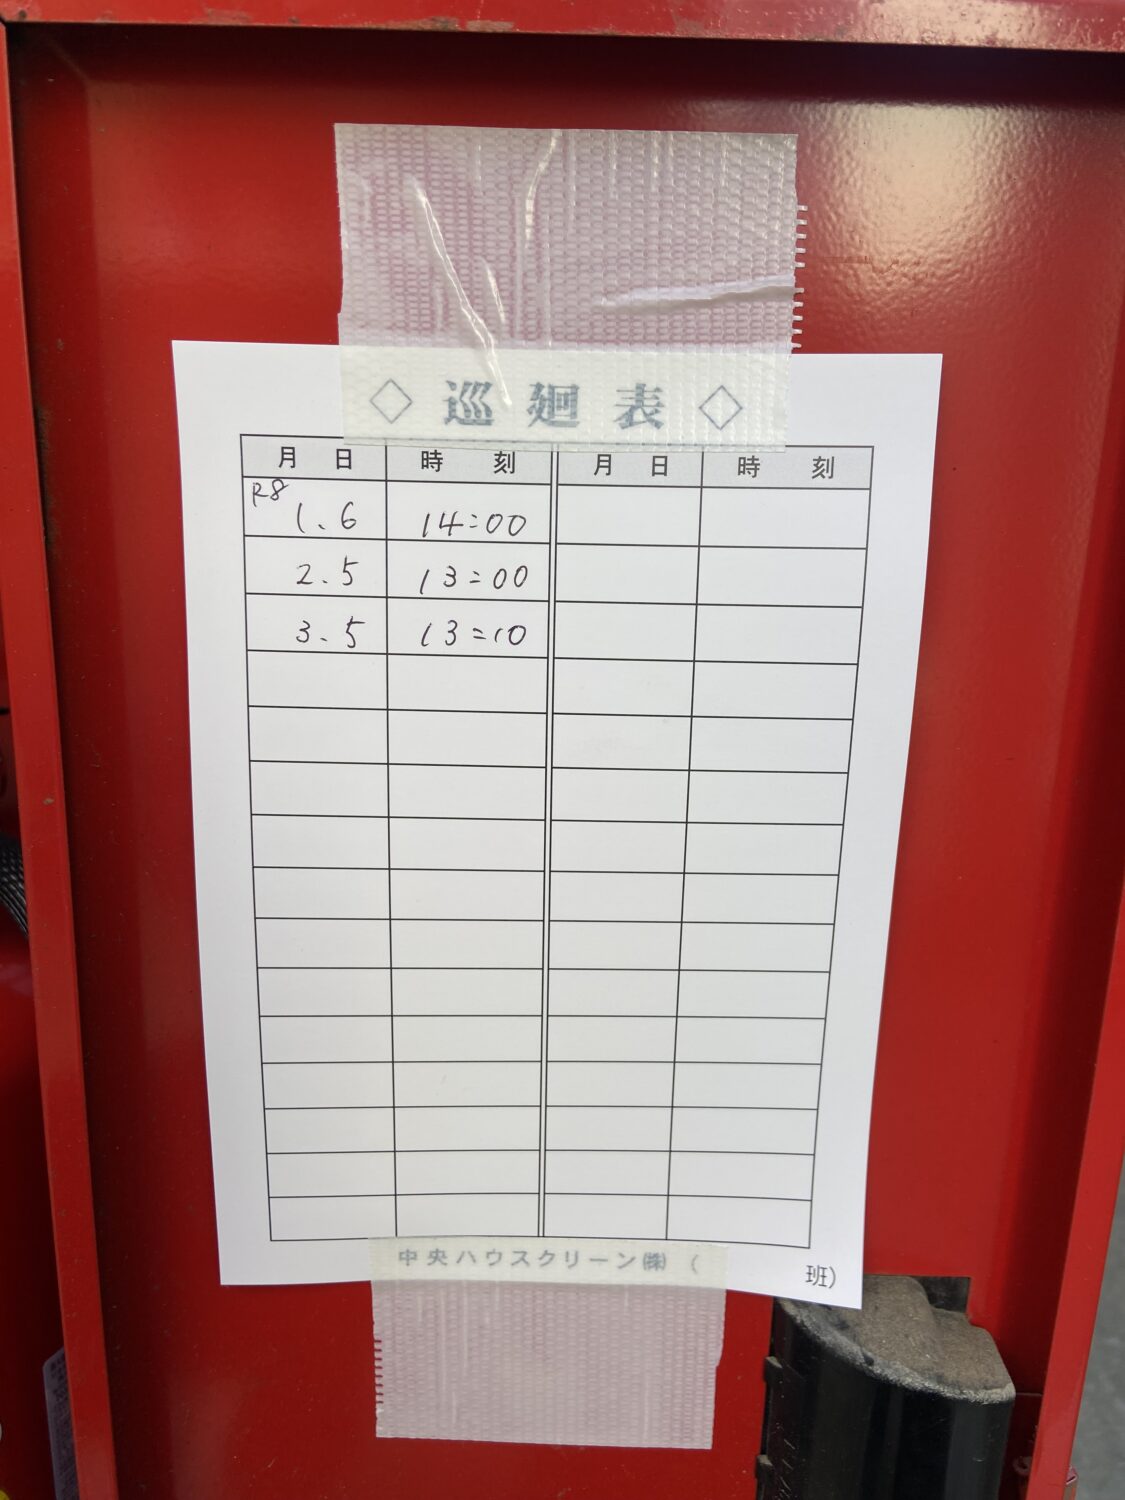 ◇ 巡廻表 ◇
月 日 時 刻 月 日 時 刻
R8
1.6 14:00
2.5 13:00
3.5 13:10
中央ハウスクリーン㈱ ( 班)